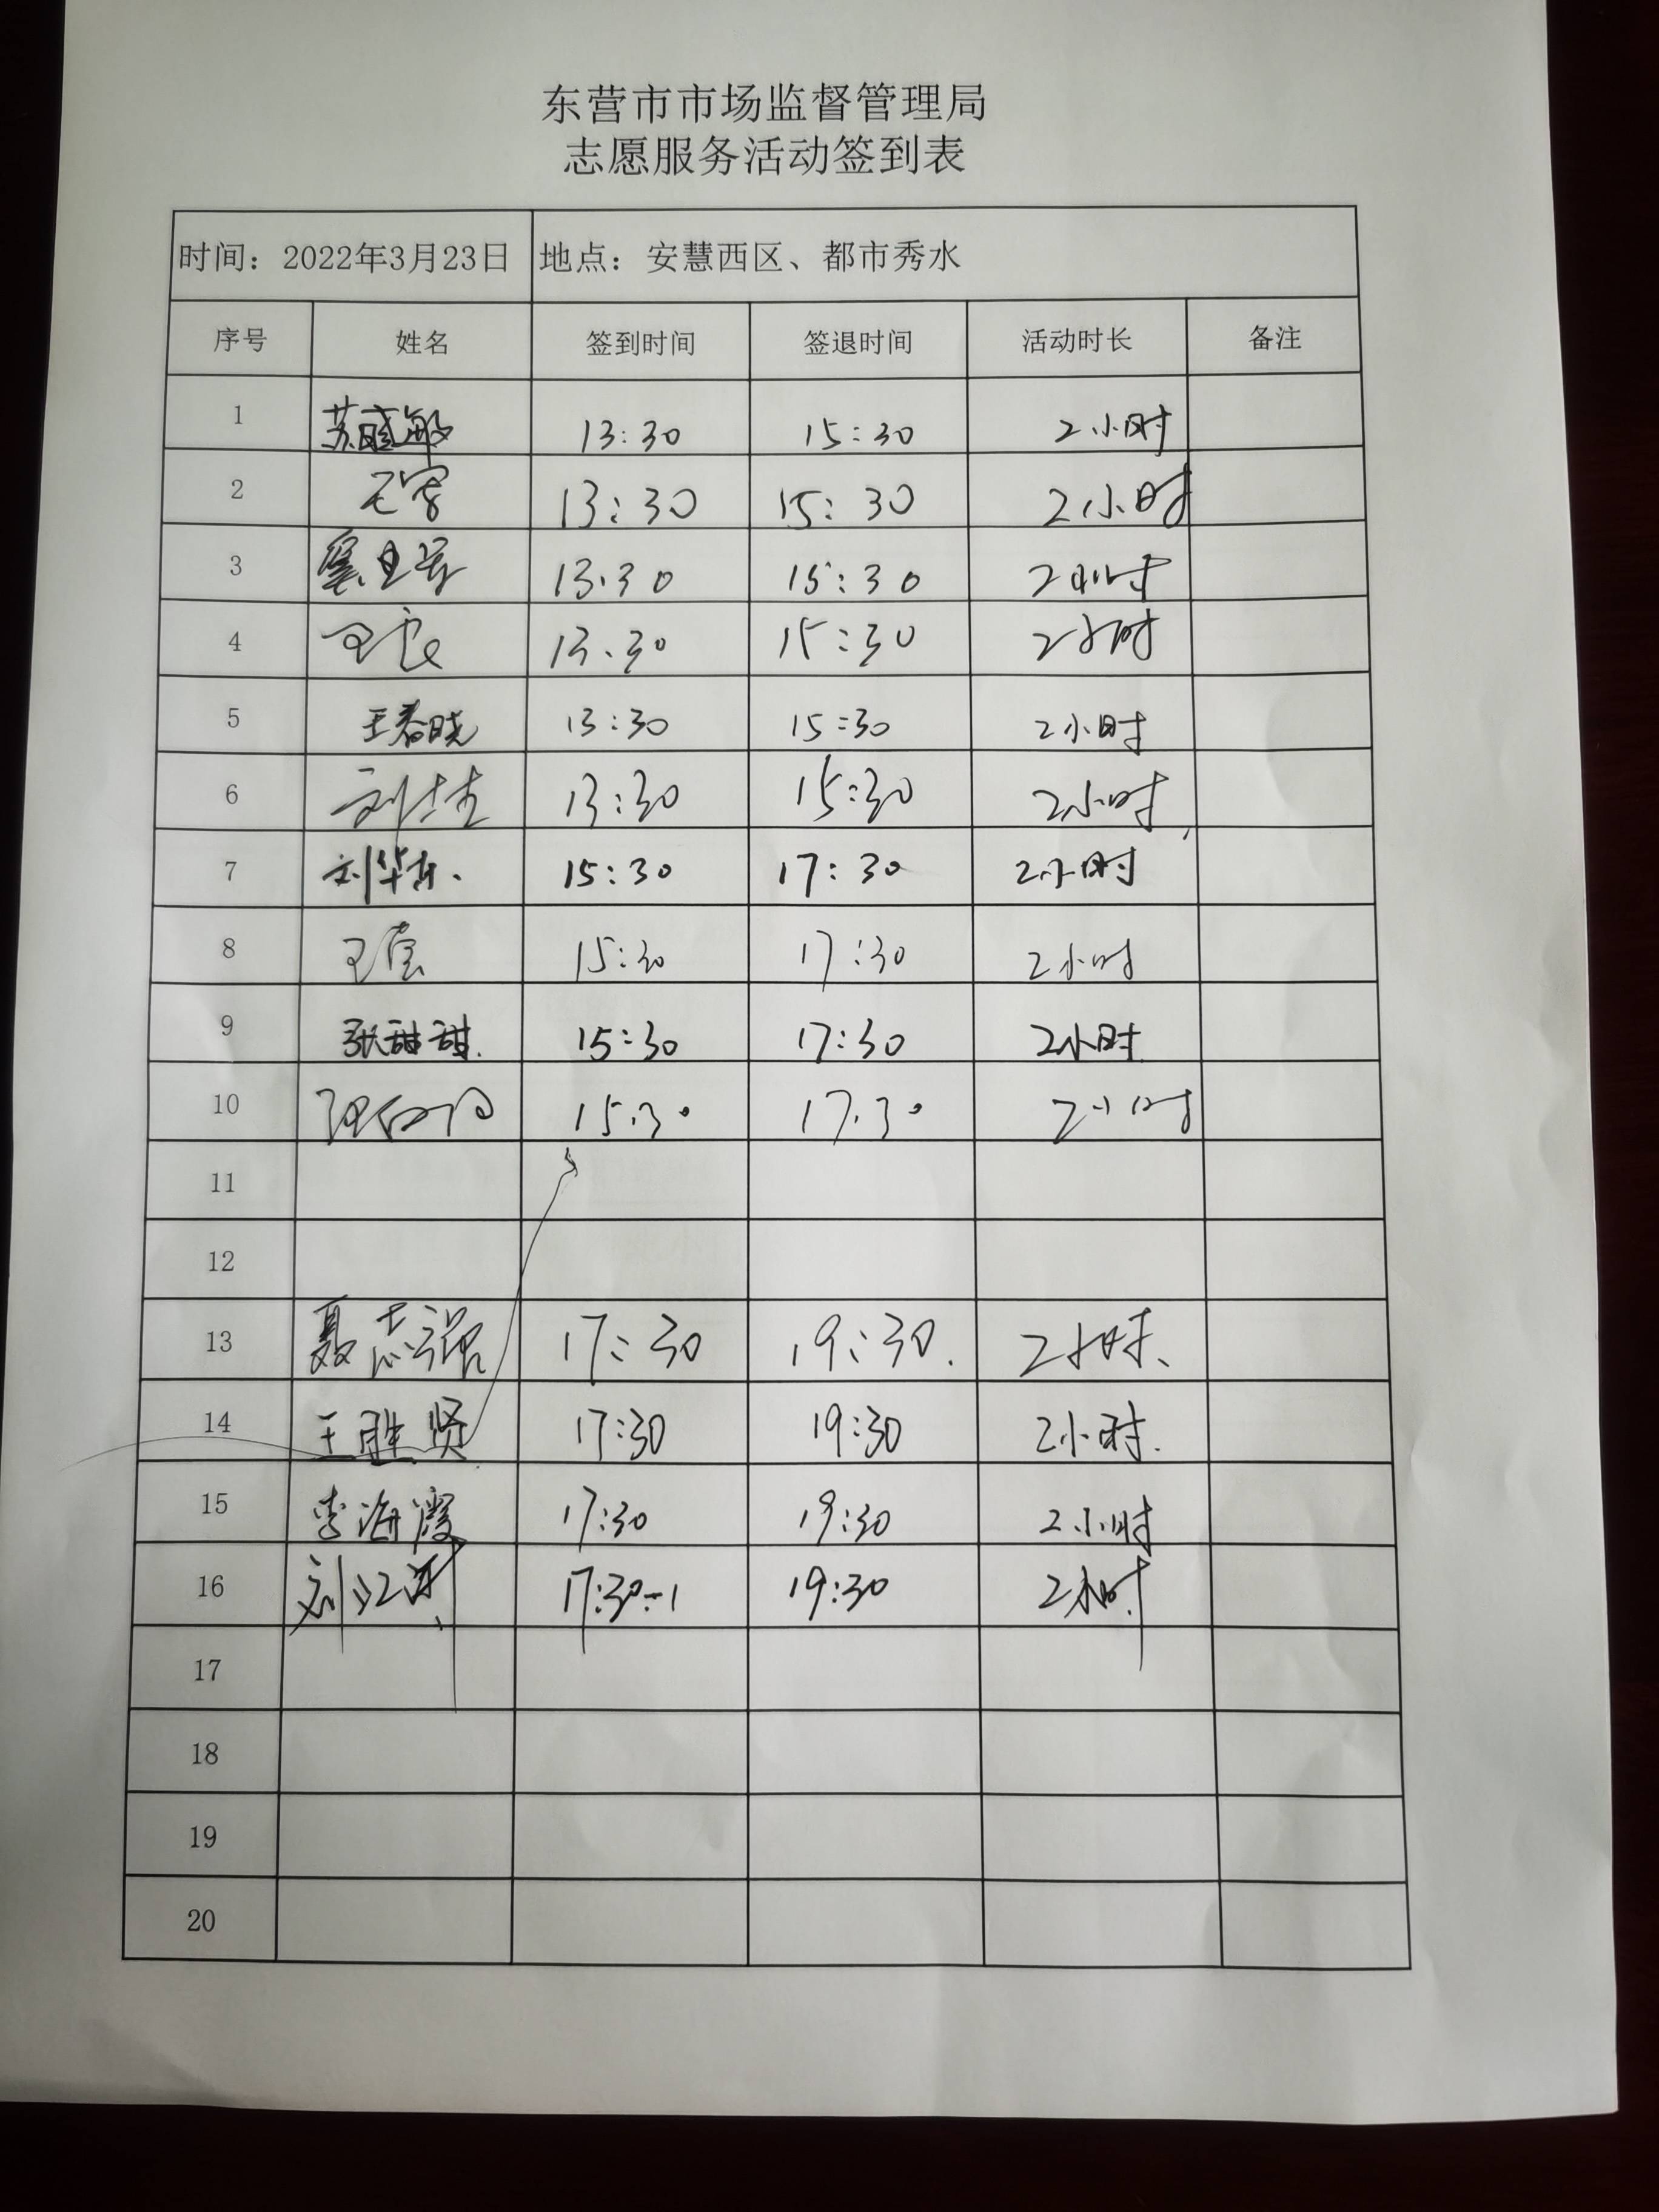 东营市市场监督管理局
志愿服务活动签到表
时间：2022年3月23日 地点：安慧西区、都市秀水
序号 姓名 签到时间 签退时间 活动时长 备注
1 13:30 15:30 2小时
2 13:30 15:30 2小时
3 13.30 15:30 2小时
4 13.30 15:30 2小时
5 王春晓 13:30 15:30 2小时
6 刘 13:30 15:30 2小时
7 刘华东. 15:30 17:30 2小时
8 王 15:30 17:30 2小时
9 张甜甜. 15:30 17:30 2小时.
10 15.30 17.30 2小时
11
12
13 聂志强 17:30 19:30. 2小时、
14 王胜贤 17:30 19:30 2小时.
15 李海霞 17:30 19:30 2小时
16 刘江洪 17:30 19:30 2小时.
17
18
19
20